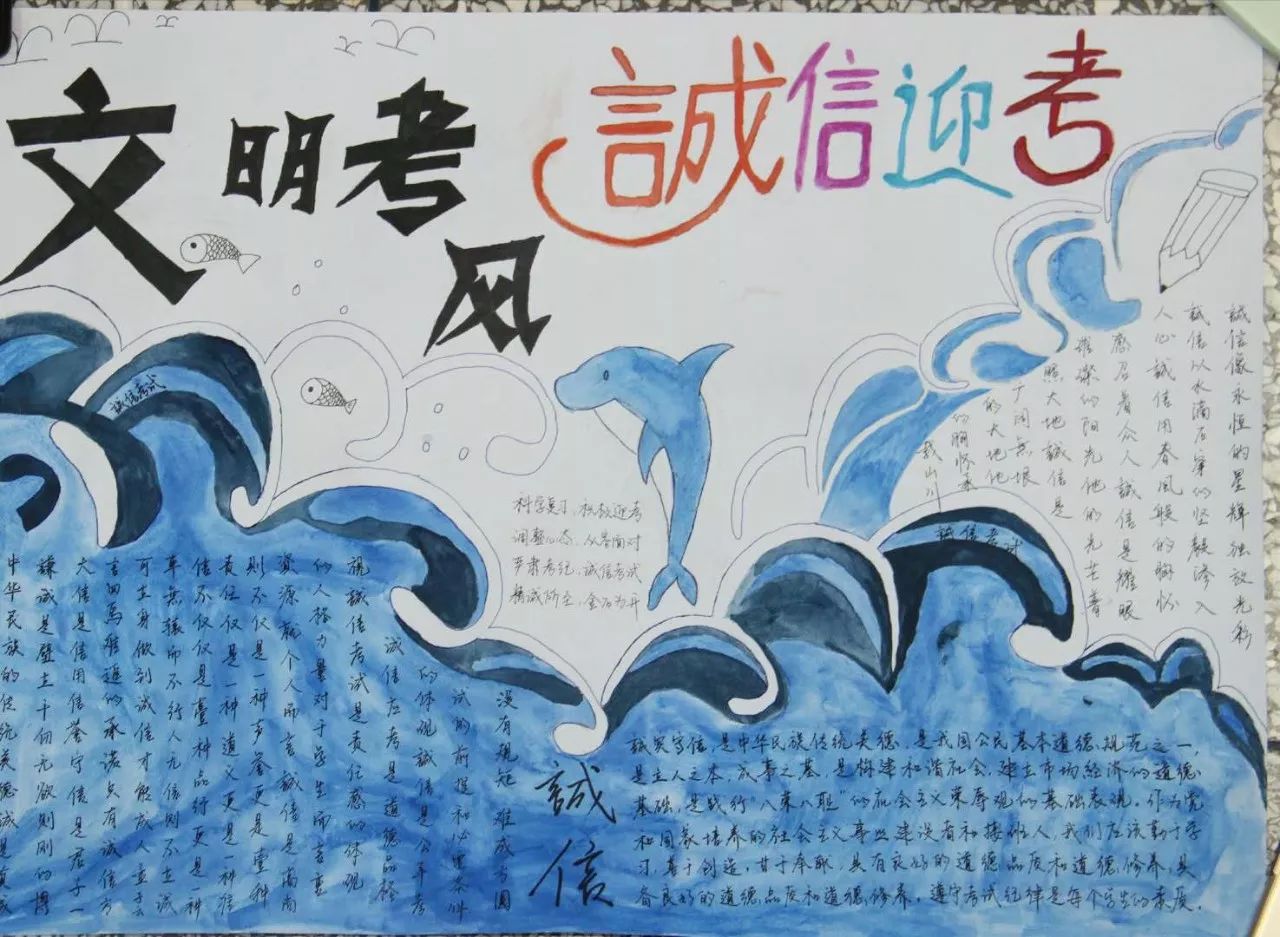 文明考
风
誠信迎考
誠信像永恒的星輝独放光彩
誠信以水滴石穿的坚毅渗入
人心誠信用春風般的胸怀
感召着众人誠信是耀眼
璀璨的阳光他的光芒普
照大地誠信是
广阔無垠
的大地他
的胸怀承
载山川
誠信考试
誠信考试
科学复习,积极迎考
调整心态,从容面对
严肃考纪,诚信考试
精诚所至,金石为开
没有規矩 难成方圆
试的前提和必要条件
的体現誠信是公平考
诚信应考是道德品格
視誠信考试是责任感的体現
的人格力量对于学生而言重
資源就个人而言誠信是高尚
則不仅是一种声誉更是壹种
责任仅是一种道义更是一种信
信不仅仅是壹种品行更是一种
車無辕而不行人无信则不立誠
可立身做到诚信才能成人重于
言四馬难追的承諾 有诚信方
大信是信用信誉守信是君子一
謙诚是壁立千仞无欲则刚的博
中华民族的传统美德誠是真诚
誠信
誠实守信,是中华民族传统美德,是我国公民基本道德规范之一,
是立人之本,成事之基,是构建和谐社会,建立市场经济的道德
基础,是践行“八荣八耻”的社会主义荣辱观的基础表现。作为党
和国家培养的社会主义事业建设者和接班人,我们应该勤于学
习,善于创造,甘于奉献,具有良好的道德品质和道德修养,具
备良好的道德品质和道德修养。遵守考试纪律是每个学生的素质。